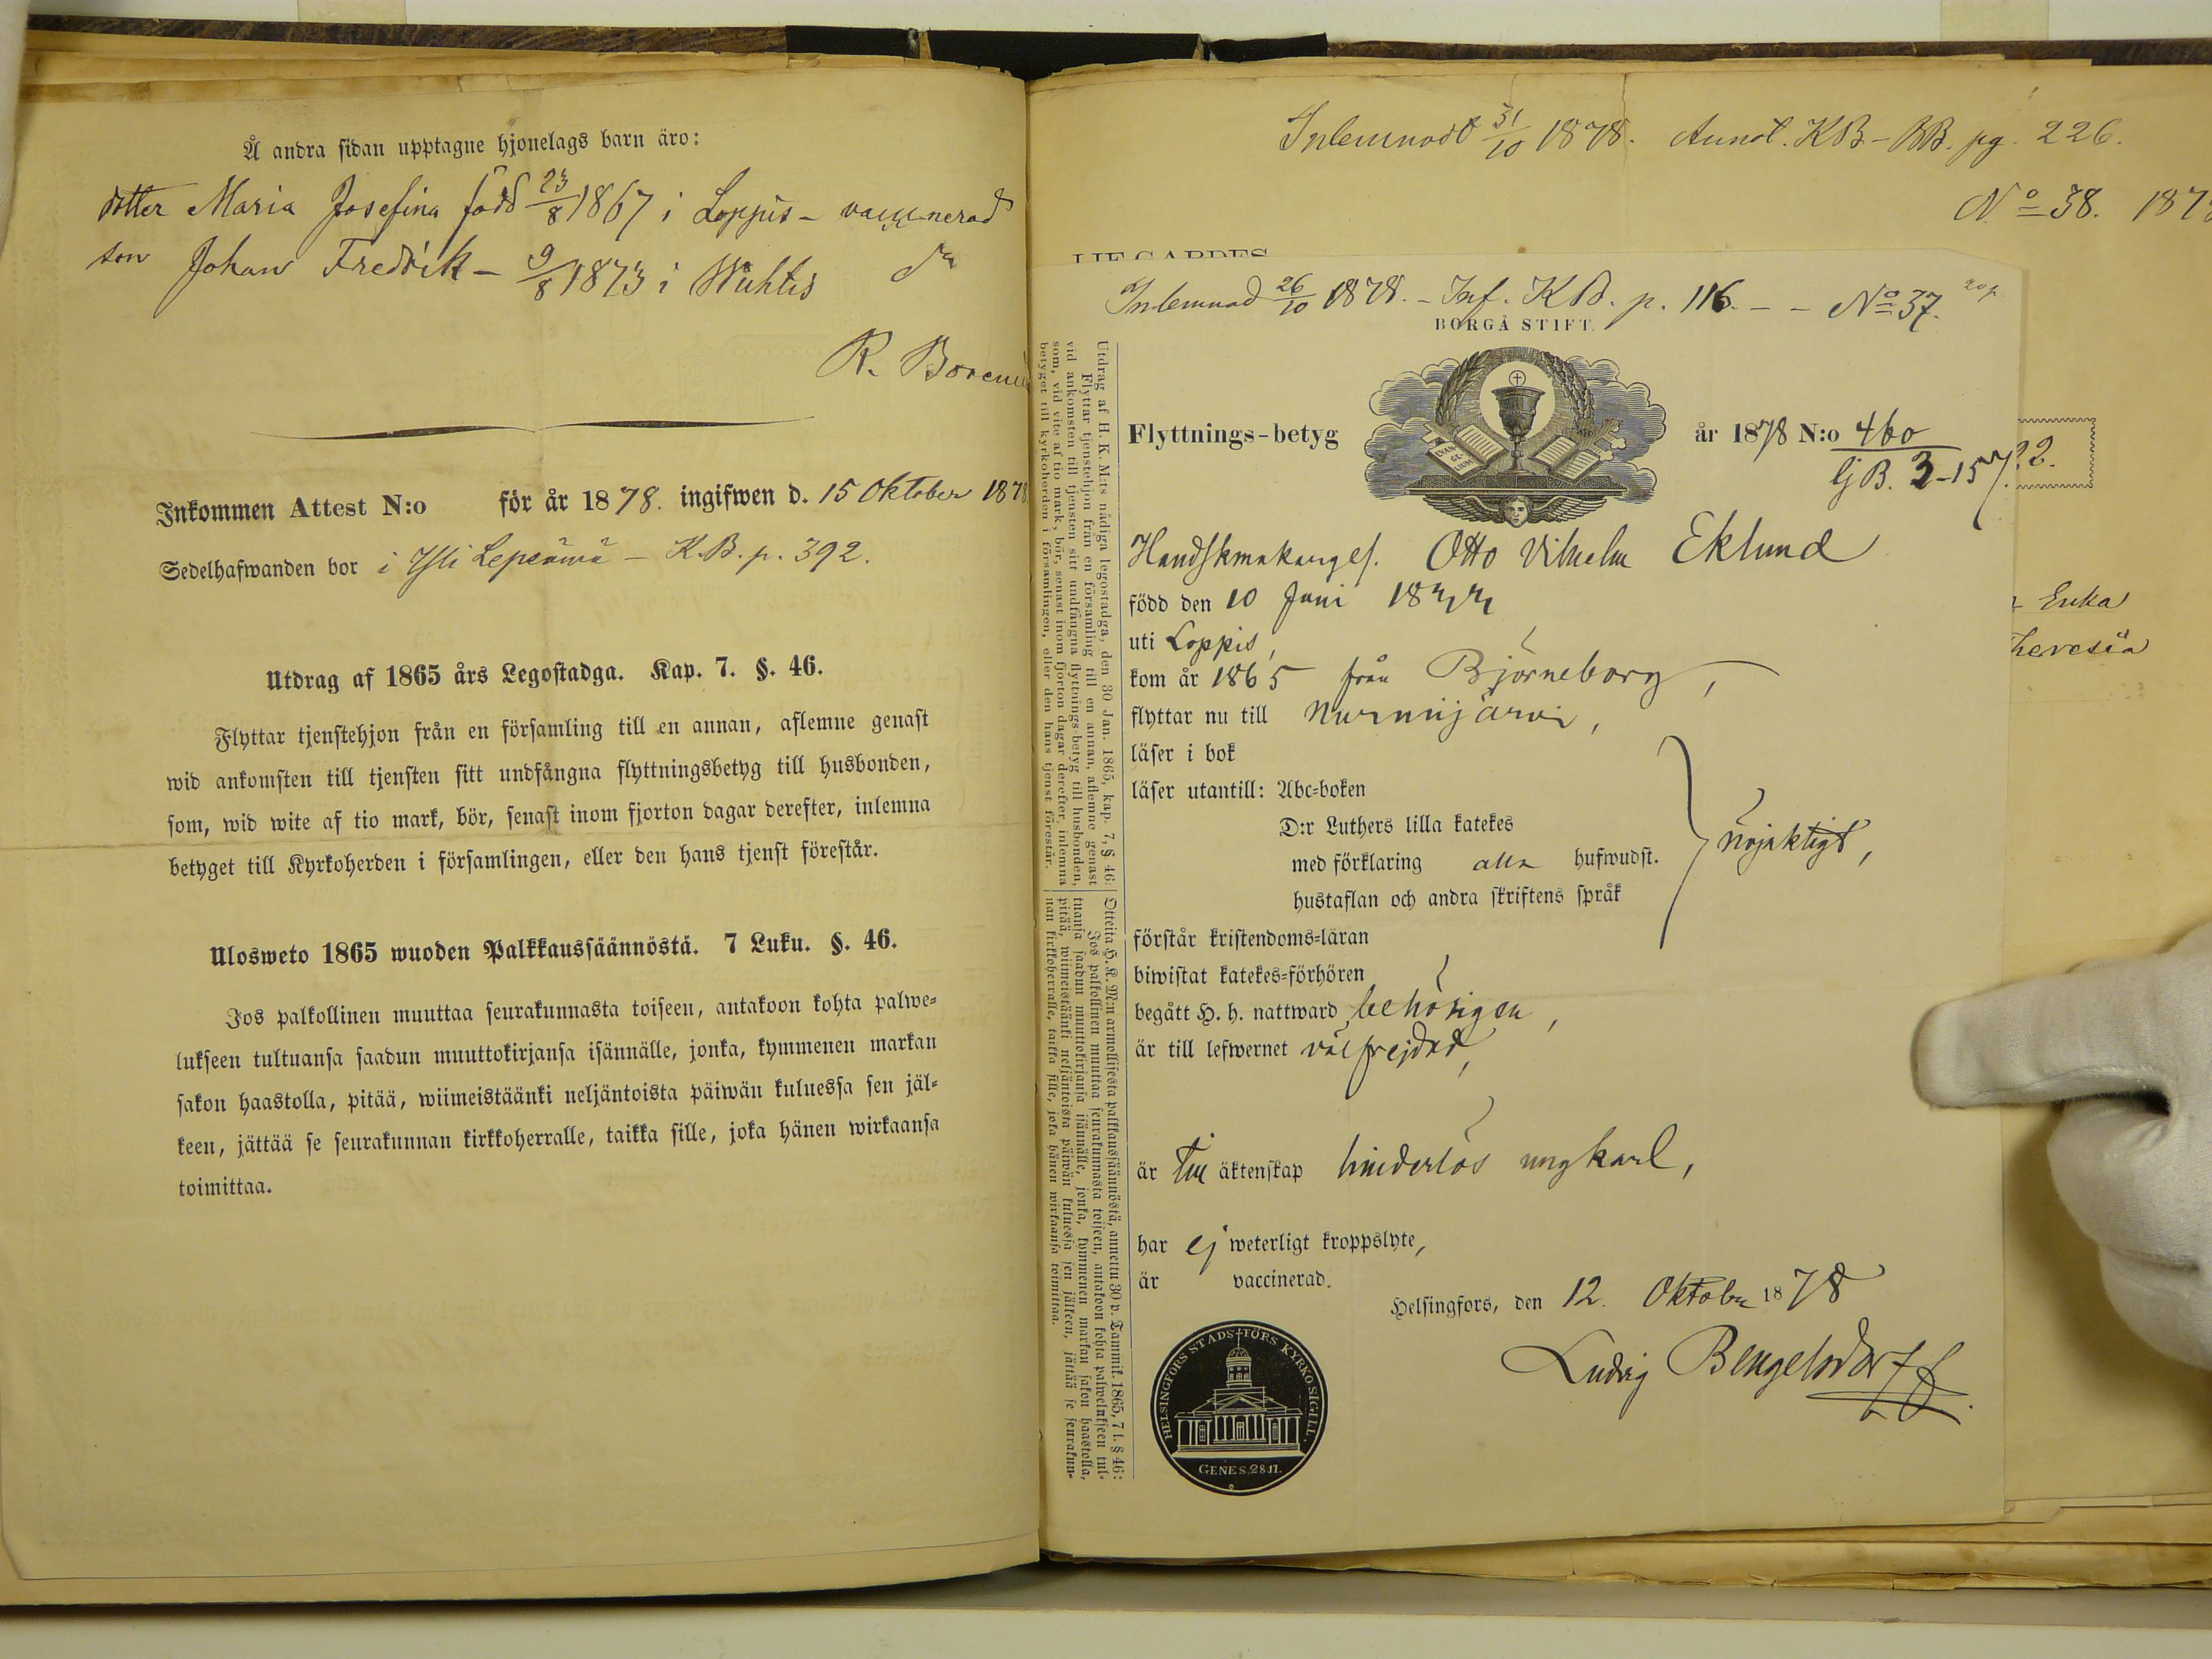 Å andra sidan upptagne hjonelags barn äro:
dotter Maria Josefina född 23/8 1867 i Loppis - vaccinerad
son Johan Fredrik - 9/8 1873 i Wichtis d:o
R. Boreniu
Inkommen Attest N:o för år 1878. ingifwen d. 15 Oktober 1878
Sedelhafwanden bor i Yli Lepsämä - K.B. p. 392.
Utdrag af 1865 års Legostadga. Kap. 7. §. 46.
Flyttar tjenstehjon från en församling till en annan, aflemne genast
wid ankomsten till tjensten sitt undfångna flyttningsbetyg till husbonden,
som, wid wite af tio mark, bör, senast inom fjorton dagar derefter, inlemna
betyget till Kyrkoherden i församlingen, eller den hans tjenst förestår.
Ulosweto 1865 wuoden Palkkaussäännöstä. 7 Luku. §. 46.
Jos palkollinen muuttaa seurakunnasta toiseen, antakoon kohta palwe-
lukseen tultuansa saadun muuttokirjansa isännälle, jonka, kymmenen markan
sakon haastolla, pitää, wiimeistäänki neljäntoista päiwän kuluessa sen jäl-
keen, jättää se seurakunnan kirkkoherralle, taikka sille, joka hänen wirkaansa
toimittaa.
Inlemnadt 31/10 1878. Annot. KB - BB. pg. 226.
No 38. 187
Inlemnad 26/10 1878. - Inf. KB. p. 116. - - No 37. 20 p.
BORGÅ STIFT.
EVAN
GE-
LIUM
Flyttnings-betyg år 1878 N:o 460
Lj B. 3-157.
22.
Handskmakarges. Otto Vilhelm Eklund
född den 10 Juni 1844
uti Loppis,
kom år 1865 från Björneborg,
flyttar nu till Nurmijärvi,
läser i bok
läser utantill: Abc-boken
D:r Luthers lilla katekes
med förklaring alla hufwudst.
hustaflan och andra skriftens språk
nöjaktigt,
förstår kristendoms-läran
biwistat katekes-förhören
begått H. h. nattward behörigen,
är till lefwernet välfrejdad,
är till äktenskap hinderlös ungkarl,
har ej weterligt kroppslyte,
är vaccinerad.
Helsingfors, den 12. Oktober 1878
Ludvig Bengelsdorff.
HELSINGFORS STADS-FÖRS KYRKO.SIGILL.
GENES.28.17.
Utdrag af H. K. M:ts nådiga legostadga, den 30 Jan. 1865, kap. 7, § 46:
Flyttar tjenstehjon från en församling till en annan, aflemne genast
vid ankomsten till tjensten sitt undfångna flyttnings-betyg till husbonden,
som, vid vite af tio mark, bör, senast inom fjorton dagar derefter, inlemna
betyget till kyrkoherden i församlingen, eller den hans tjenst förestår.
Otteita H. K. M:n armollisesta palkkaussäännöstä, annettu 30 p. Tammik. 1865, 7 l. § 46:
Jos palkollinen muuttaa seurakunnasta toiseen, antakoon kohta palwelukseen tul-
tuansa saadun muuttokirjansa isännälle, jonka, kymmenen markan sakon haastolla,
pitää, wiimeistäänki neljäntoista päiwän kuluessa sen jälkeen, jättää se seurakun-
nan kirkkoherralle, taikka sille, joka hänen wirkaansa toimittaa.
Erika
heresia